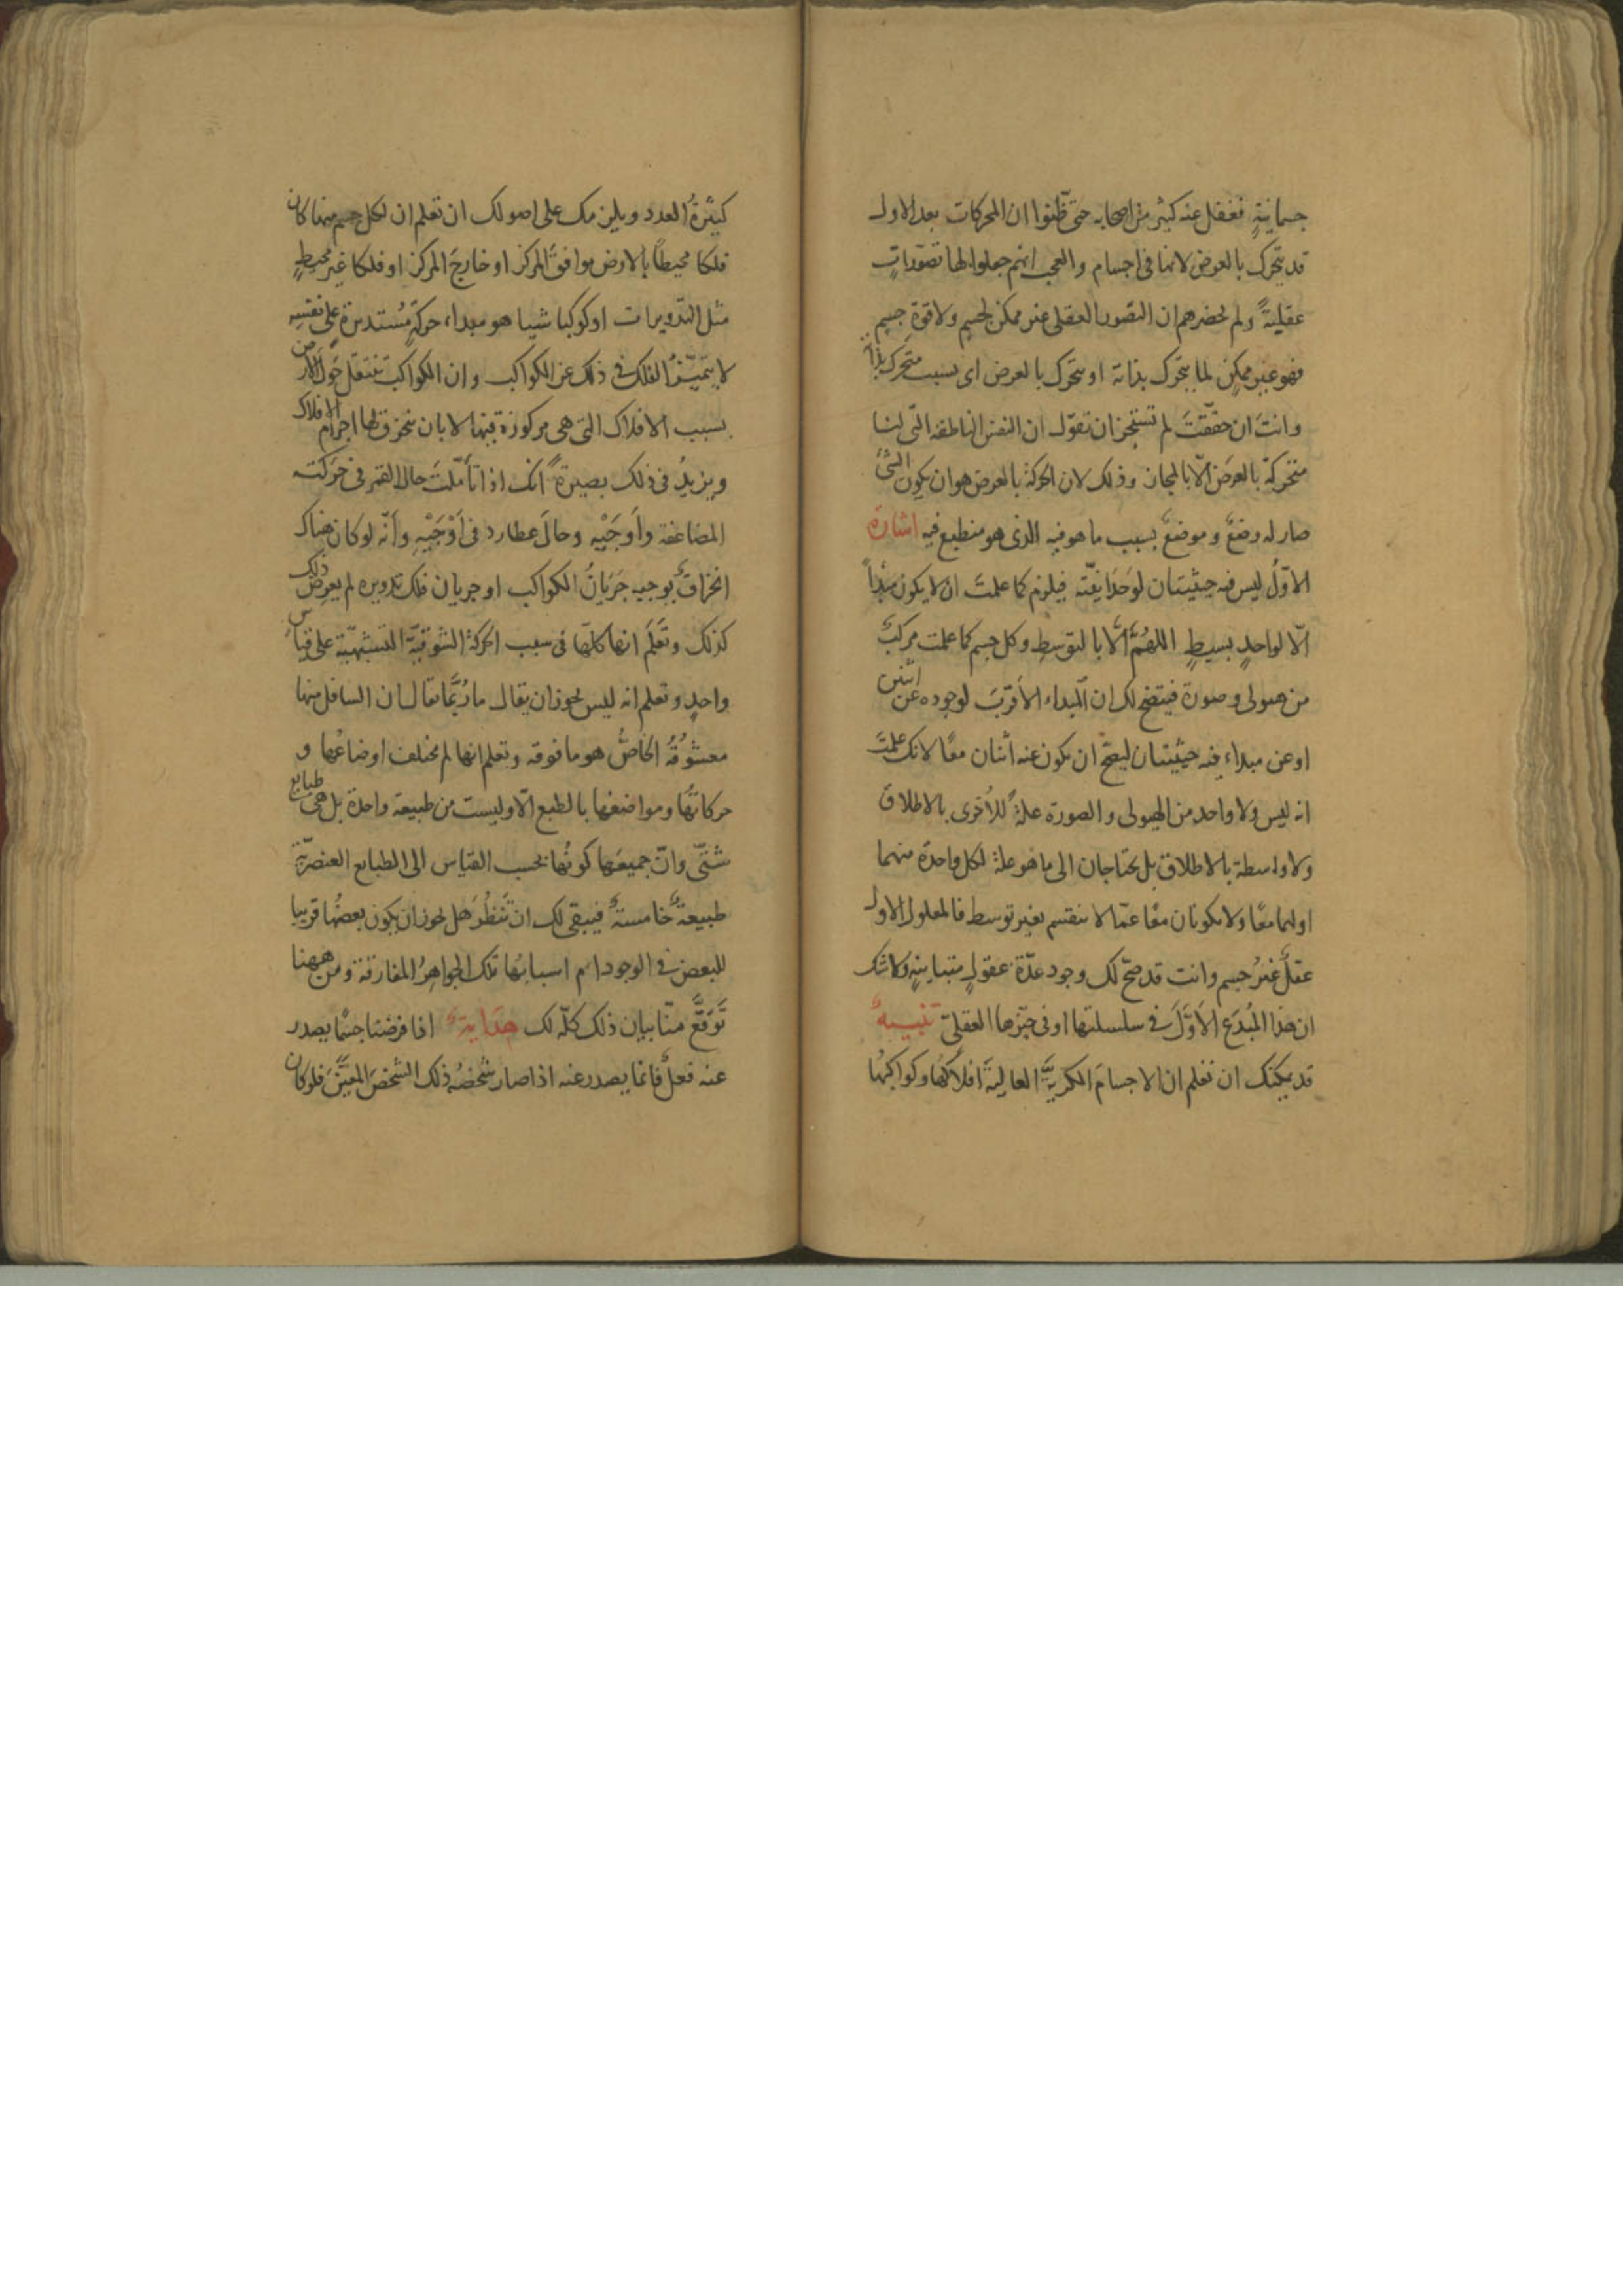 جسمانيةٍ فغفل عنه كثير من اصحابه حتى ظنوا ان المحركات بعد الاول
قد يتحرك بالعرض لانها فى اجسام والعجب انهم جعلوا لها تصوّراتٍ
عقليةً ولم يحضرهم ان التصور العقلى غير ممكن لجسمٍ ولا قوة جسمٍ
فهو غير ممكنٍ لما يتحرك بذاته او يتحرك بالعرض اى بسبب متحرك بذاته
وانت ان حققتَ لم تستجز ان تقول ان النفس الناطقة التى لنا
متحركة بالعرض الّا بالمجاز وذلك لان الحركة بالعرض هو ان يكون الشئ
صار له وضعٌ وموضعٌ بسبب ما هو فيه الذى هو منطبع فيه اشارة
الاوّلُ ليس فيه حيثيتان لوحدانيّته فيلزم كما علمتَ ان لا يكون مبدأً
الّا لواحدٍ بسيطٍ اللهُمَّ الّا بالتوسطِ وكل جسم كما علمت مركبٌ
من هيولى وصورة فيتضح لك ان المبداء الاقربَ لوجوده عن اثنين
او عن مبداء فيه حيثيتان ليصحّ ان يكون عنه اثنان معًا لانك علمتَ
انه ليس ولا واحد من الهيولى والصورة علةً للأخرى بالاطلاق
ولا واسطة بالاطلاق بل يحتاجان الى ما هو علة لكل واحدة منهما
او لهما معًا ولا يكونان معًا عمّا لا ينقسم بغير توسط فالمعلول الاول
عقلٌ غيرُ جسم وانت قد صحّ لك وجود عدّة عقولٍ متباينةٍ ولا شك
ان هذا المبُدَع الاوّلَ فى سلسلتها او فى حيّزها العقلىّ تنبيهٌ
قد يمكنك ان تعلم ان الاجسامَ الكريّةَ العاليةَ افلاكَها وكواكبَها
كثيرةُ العدد ويلزمك على اصولك ان تعلم ان لكل جسم منها كان
فلكا محيطًا بالارض موافقَ المركز او خارجَ المركز او فلكا غير محيطٍ
مثل التدويرات او كوكبا شيا هو مبداء حركةٍ مُستديرة على نفسِه
لا يتميّزُ الفلك فى ذلك عن الكواكب وان الكواكب تنتقل حَولَ الارض
بسبب الافلاك التى هى مركوزة فيها لا بان تنخرق لها اجرام الافلاك
ويزيدُ فى ذلك بصيرةً انك اذا تأمّلتَ حال القمر فى حركته
المضاعفة واَوجَيْه وحالَ عطارد فى اَوْجَيْهِ وأنّه لو كان هناك
انخراقٌ يوجبه جَرَيانُ الكواكب او جريان فلك تدويره لم يعرض ذلك
كذلك وتَعلَم انها كلّها فى سبب الحركة الشوقيّة التشبهيّة على قياسٍ
واحدٍ وتعلم انه ليس يجوز ان يقال ما رُبّما يقال ان السافل منها
معشوُقُهُ الخاصُّ هو ما فوقه وتعلم انها لم تختلف اوضاعُها و
حركاتُها ومواضعُها بالطبع الّا وليست من طبيعة واحدة بل هى طبايع
شتّى وانّ جميعَها كونُها بحسب القياس الى الطبايع العنصرّية
طبيعةٌ خامسةٌ فيبقى لك ان تَنظُرَ هل يجوز ان يكون بعضُها قريبا
للبعض فى الوجود ام اسبابُها تلك الجواهِرُ المفارقة ومن ههنا
تَوَقَّعْ منّا بيان ذلك كلّه لك هدايةٌ اذا فرضنا جسمًا يصدر
عنه فعلٌ فانما يصدر عنه اذا صار شخصُه ذلك الشخصَ المعيّنَ فلو كان